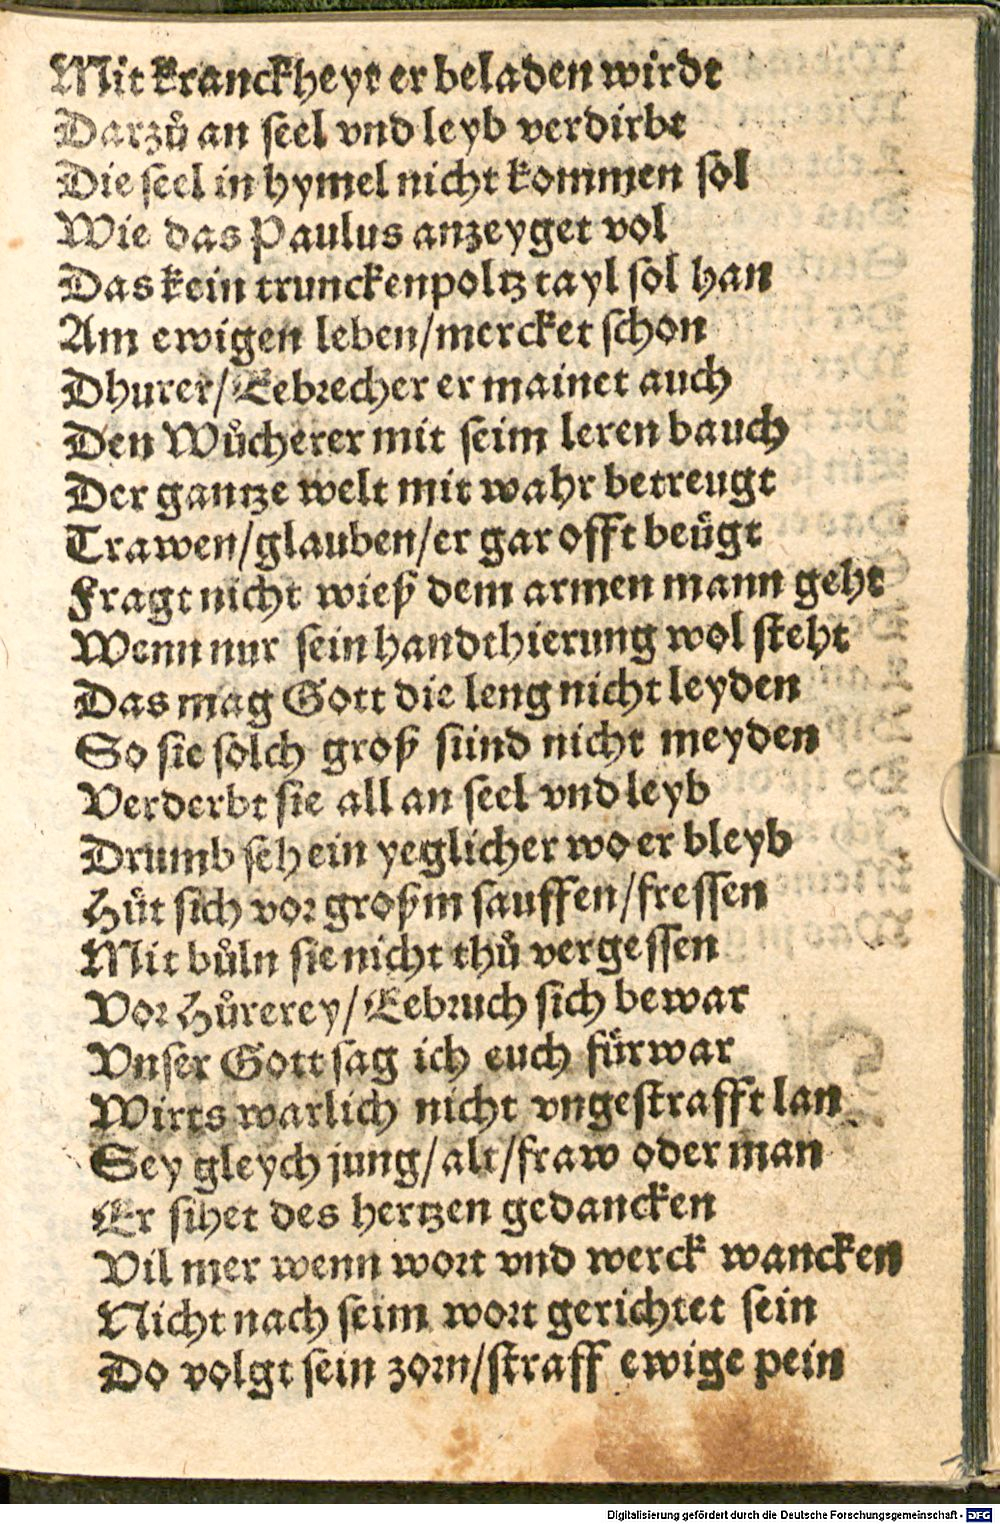 Mit kranckheyt er beladen wirdt
Darzů an seel vnd leyb verdirbt
Die seel in hymel nicht kommen sol
Wie das Paulus anzeyget vol
Das kein trunckenpoltz tayl sol han
Am ewigen leben/mercket schon
Dhurer/Eebrecher er mainet auch
Den Wůcherer mit seim leren bauch
Der gantze welt mit wahr betreugt
Trawen/glauben/er gar offt beügt
Fragt nicht wieß dem armen mann geht
Wenn nur sein handthierung wol steht
Das mag Gott die leng nicht leyden
So sie solch groß sünd nicht meyden
Verderbt sie all an seel vnd leyb
Drumb seh ein yeglicher wo er bleyb
Hüt sich vor großm sauffen/fressen
Mit bůln sie nicht thů vergessen
Vor Hůrerey/Eebruch sich bewar
Vnser Gott sag ich euch fürwar
Wirts warlich nicht vngestrafft lan
Sey gleych jung/alt/fraw oder man
Er sihet des hertzen gedancken
Vil mer wenn wort vnd werck wancken
Nicht nach seim wort gerichtet sein
Do volgt sein zorn/straff ewige pein
Digitalisierung gefördert durch die Deutsche Forschungsgemeinschaft - DFG